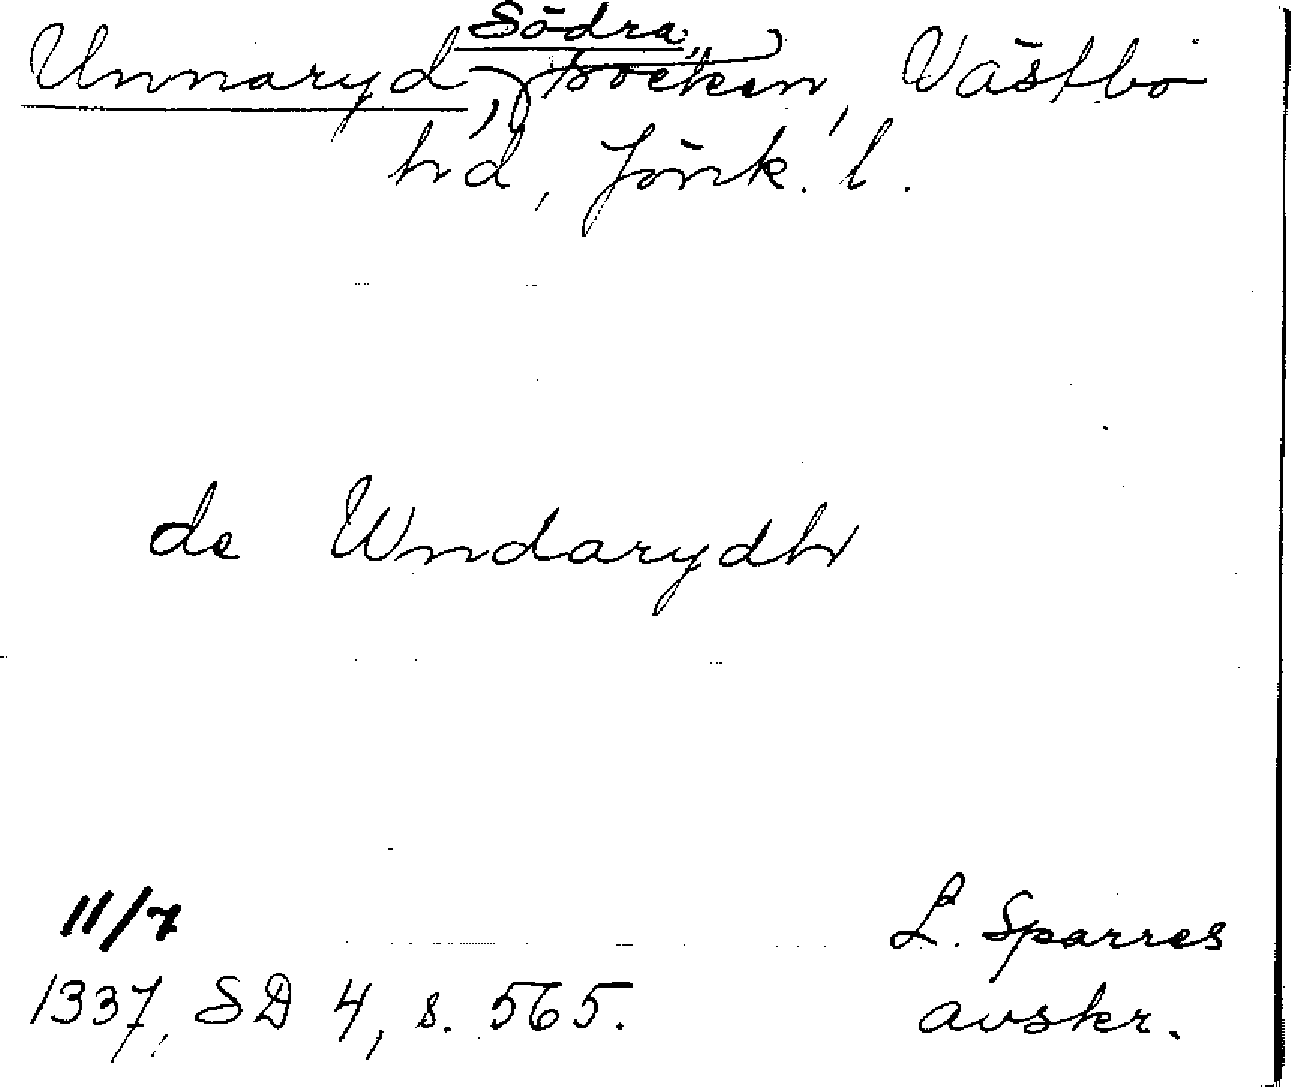 Södra
Unnaryd, socken, Västbo
hd, Jönk. l.
de Wndarydh
11/7
L. Sparres
1337, SD 4, s. 565.
avskr.